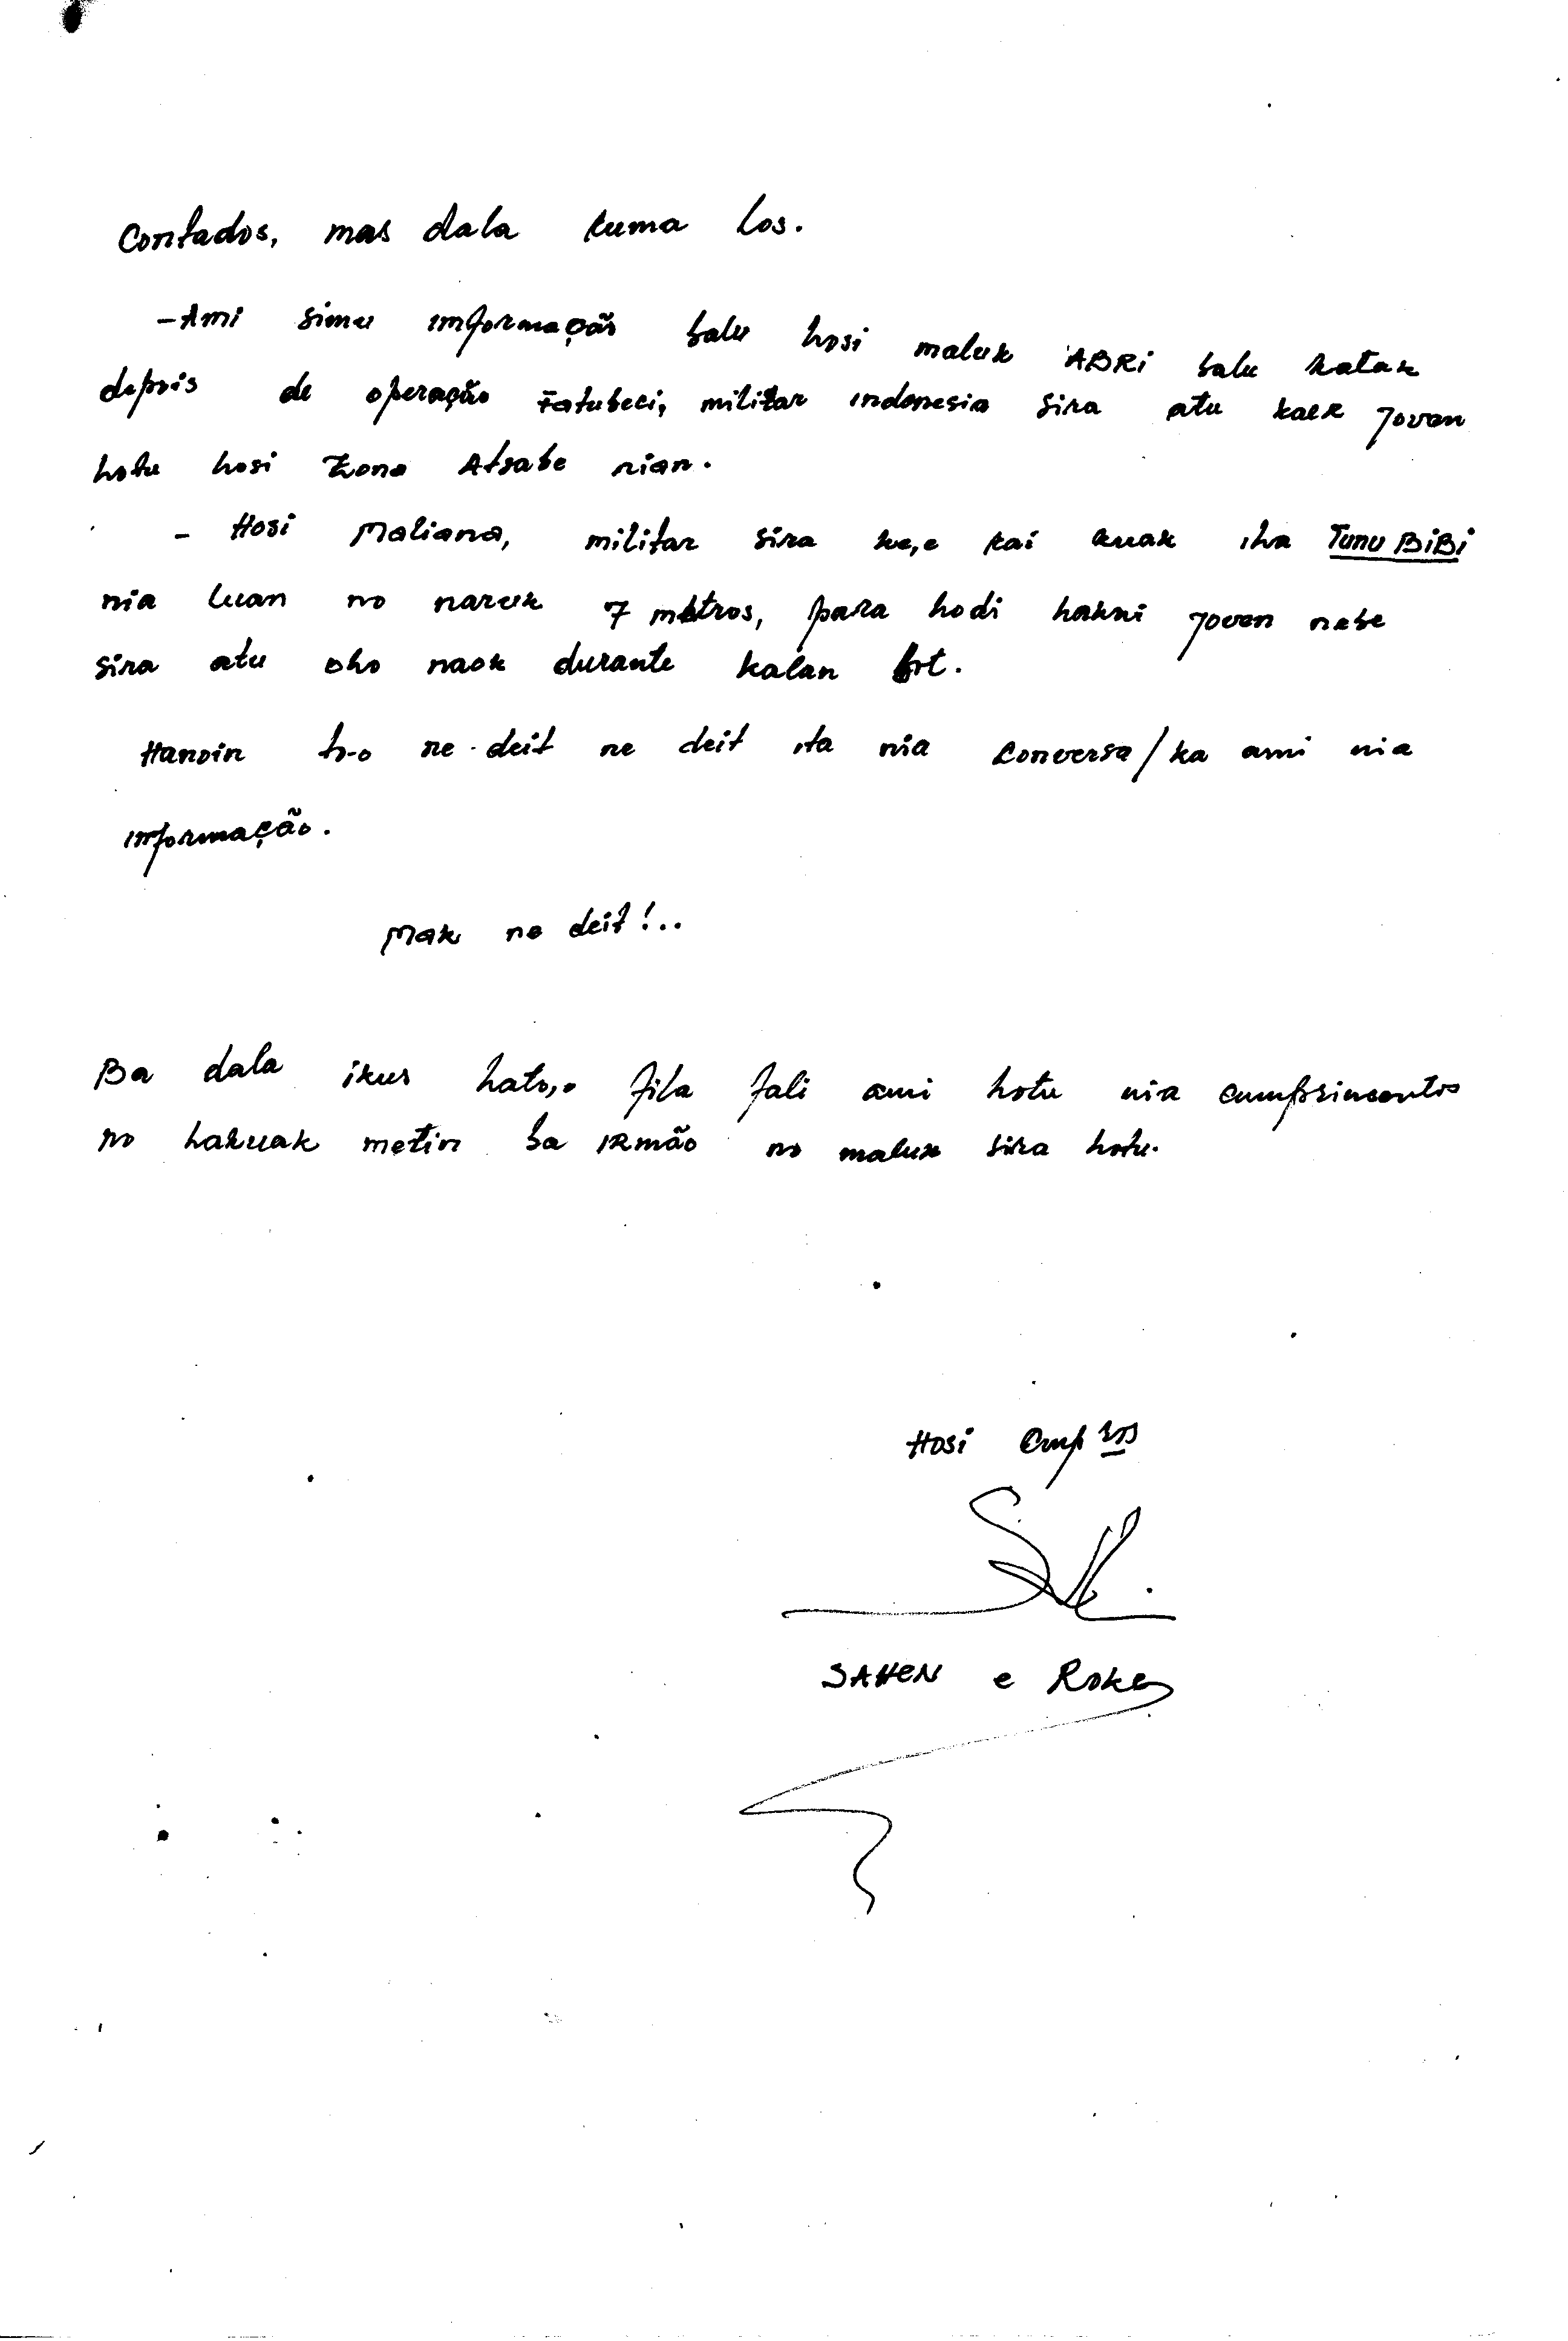 Contados, mas dala ruma los.
- Ami simu imformação balu hosi maluk ABRI balu katak
depois de operação Fatubeci, militar indonesia sira atu kaer joven
hotu hosi Zona Atsabe nian.
- Hosi Maliana, militar sira ke,e rai kuak iha TUNU BiBi
nia luan no naruk 7 metros, para hodi hakoi joven nebe
sira atu oho naok durante kalan
Hanoin h-o ne deit ne deit ita nia Conversa/ka ami nia
informação.
Mak ne deit!..
Ba dala ikus hato,o fila fali ami hotu nia cumprimentos
no hakuak metin ba IRmão no maluk sira hotu.
Hosi Cmp
SAHEN e Roke